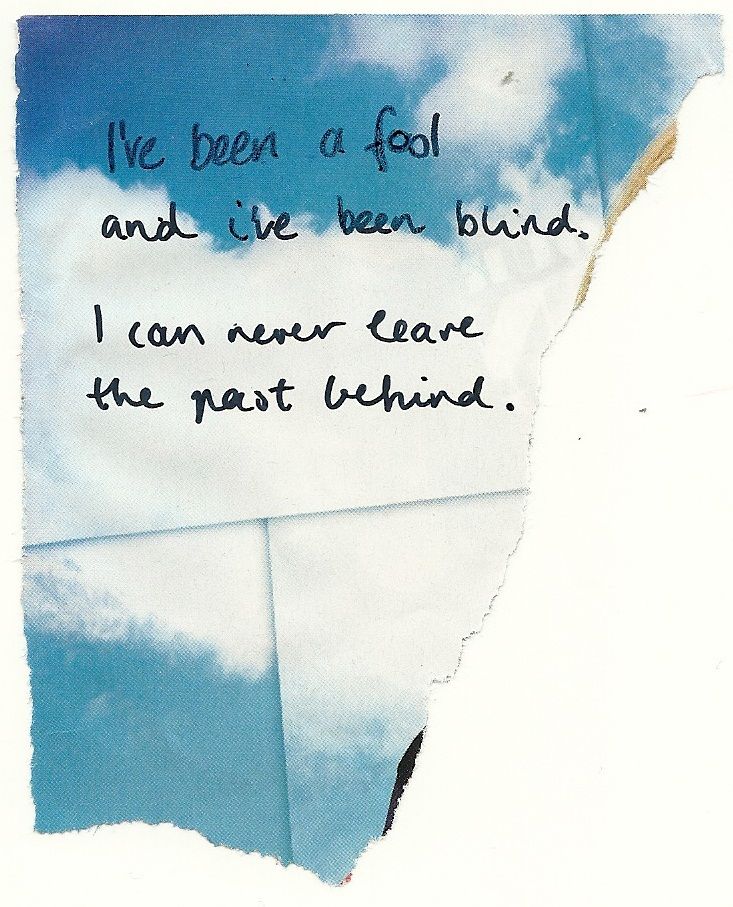 I've been a fool
and i've been blind.
I can never leave
the past behind.